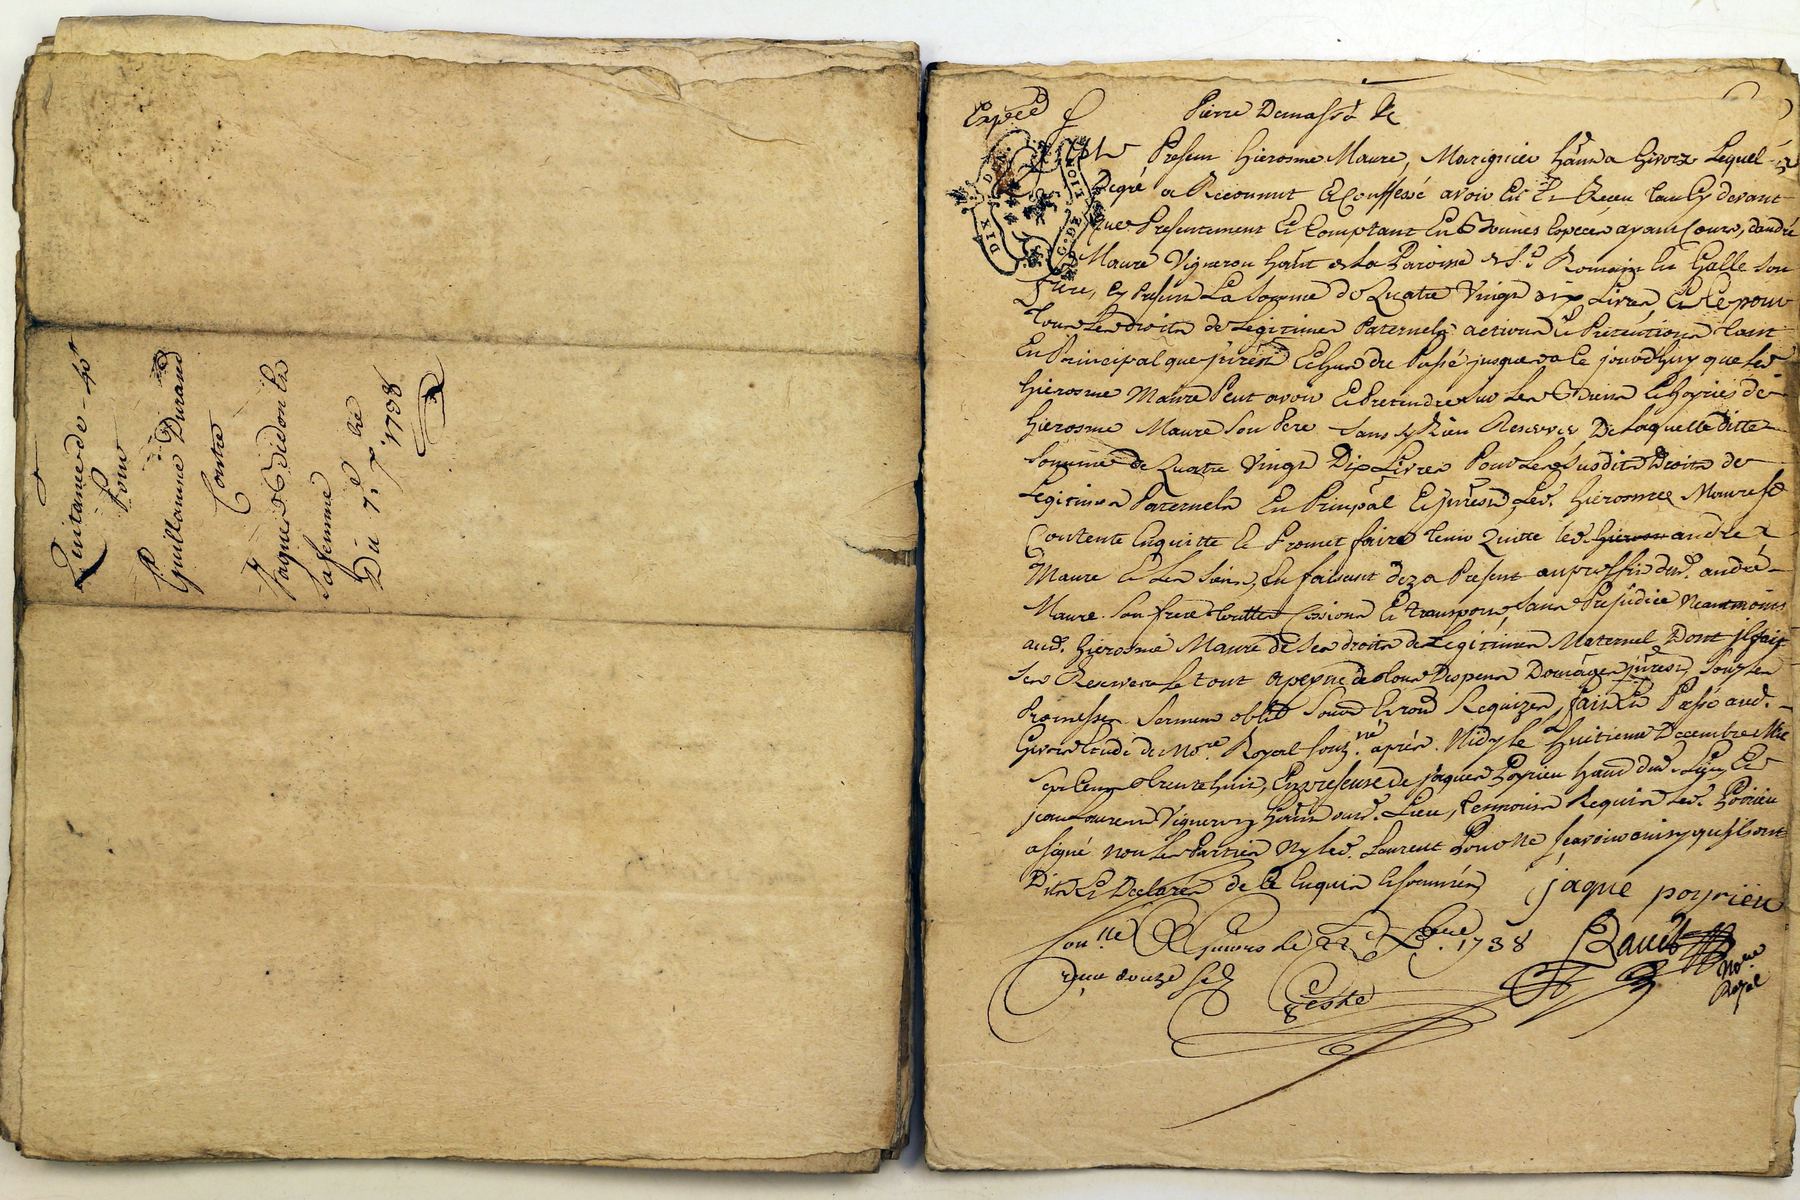 Quitance de 40#
Pour
Sr Guillaume Durand
Contre
Jaques Desdidon Et
sa femme
Du 7e 7bre
1738
Expeed
Pierre Demassó
Present hierosme Maure, Marignier hānt a Givorz Lequel
Degré a Reconnut Et Confessé avoir Eu Et Receu tant Cy devant
que Presentement Et Comptant En Bonnes Espèces ayant Cours, dandré
Maure Vigneron hāt de La Paroisse de St Romain En Galle son
frere, Cy present La somme de Quatre Vingt dix Livres Et Ce pour
tous Ses droits de Legitimes Paternels actions Et Pretentions tant
En Principal que jnrest Echus du Passé jusques a Ce jourdhuy que Led
hierosme Maure Peut avoir Et Pretendre sur Les Biens Et hoyries de
hierosme Maure Son Pere Sans y Rien Reserver De Laquelle ditte
Somme de Quatre Vingt Dix Livres Pour Les Susdits Droits de
Legitimes Paternels En Prinpāl Et jnrest, Led. hierosme Maure se
Contente Enquitte Et Promet faire tenir Quitte led. hierosm andré
Maure Et Les Siens, En faisant dez a Present au proffit dud. andré
Maure son frere touttes Cessions Et transports, sans Prejudice Neantmoins
aud. hierosme Maure de Ses droits de Legitimes Maternel Dont jl fait
Ses Reserves Le tout a peyne de tous Despens Domāges jnrest, Souz Les
Promesses Serment oblid Soumd Et rond Requizes, fait Et Passé aud.
Givors Etude du Nore. Royal souz.né après Midy Le huitieme Decembre Mil
Sept Cents trente huit, En presence de jaques Poyrieu hānt dud. Lieu Et
jean Laurent Vigneron hānt aud. Lieu, temoins Requis Led. Poyrieu
a signé non Les Parties Ny led. Laurent Pour Ne Scavoir ainsy qu'ils ont
Dits Et Declarés de Ce Enquis Et sommés
jaque poyrieu
Con.lle A Givors le 22e Xbre 1738
Receu douze s
Bauët
Nore
Royal